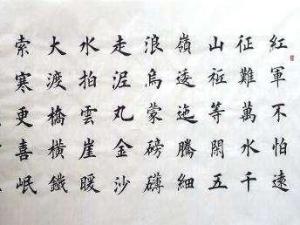 紅軍不怕遠
征難萬水千
山祗等閑五
嶺逶迤騰細
浪烏蒙磅礴
走泥丸金沙
水拍雲崖暖
大渡橋橫鐵
索寒更喜岷